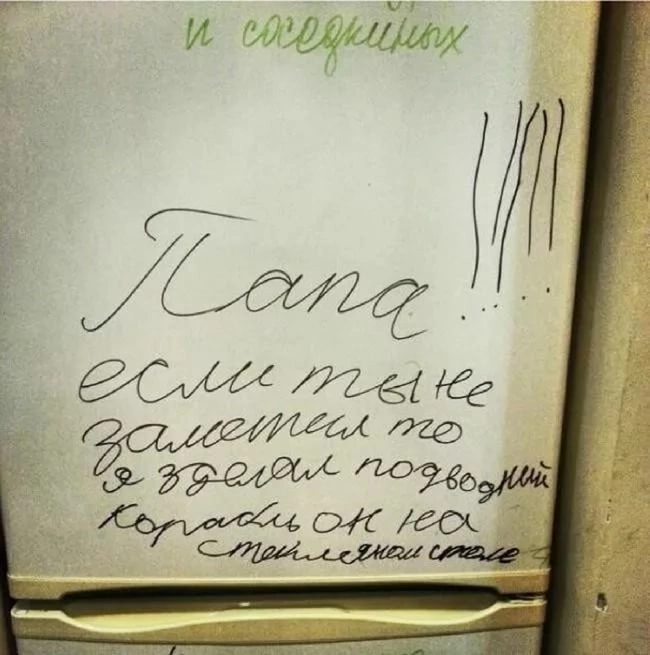 и соседкиных
Папа !!!!!
если ты не
заметил то
я зделал подводный
корабль он на
стекляном столе